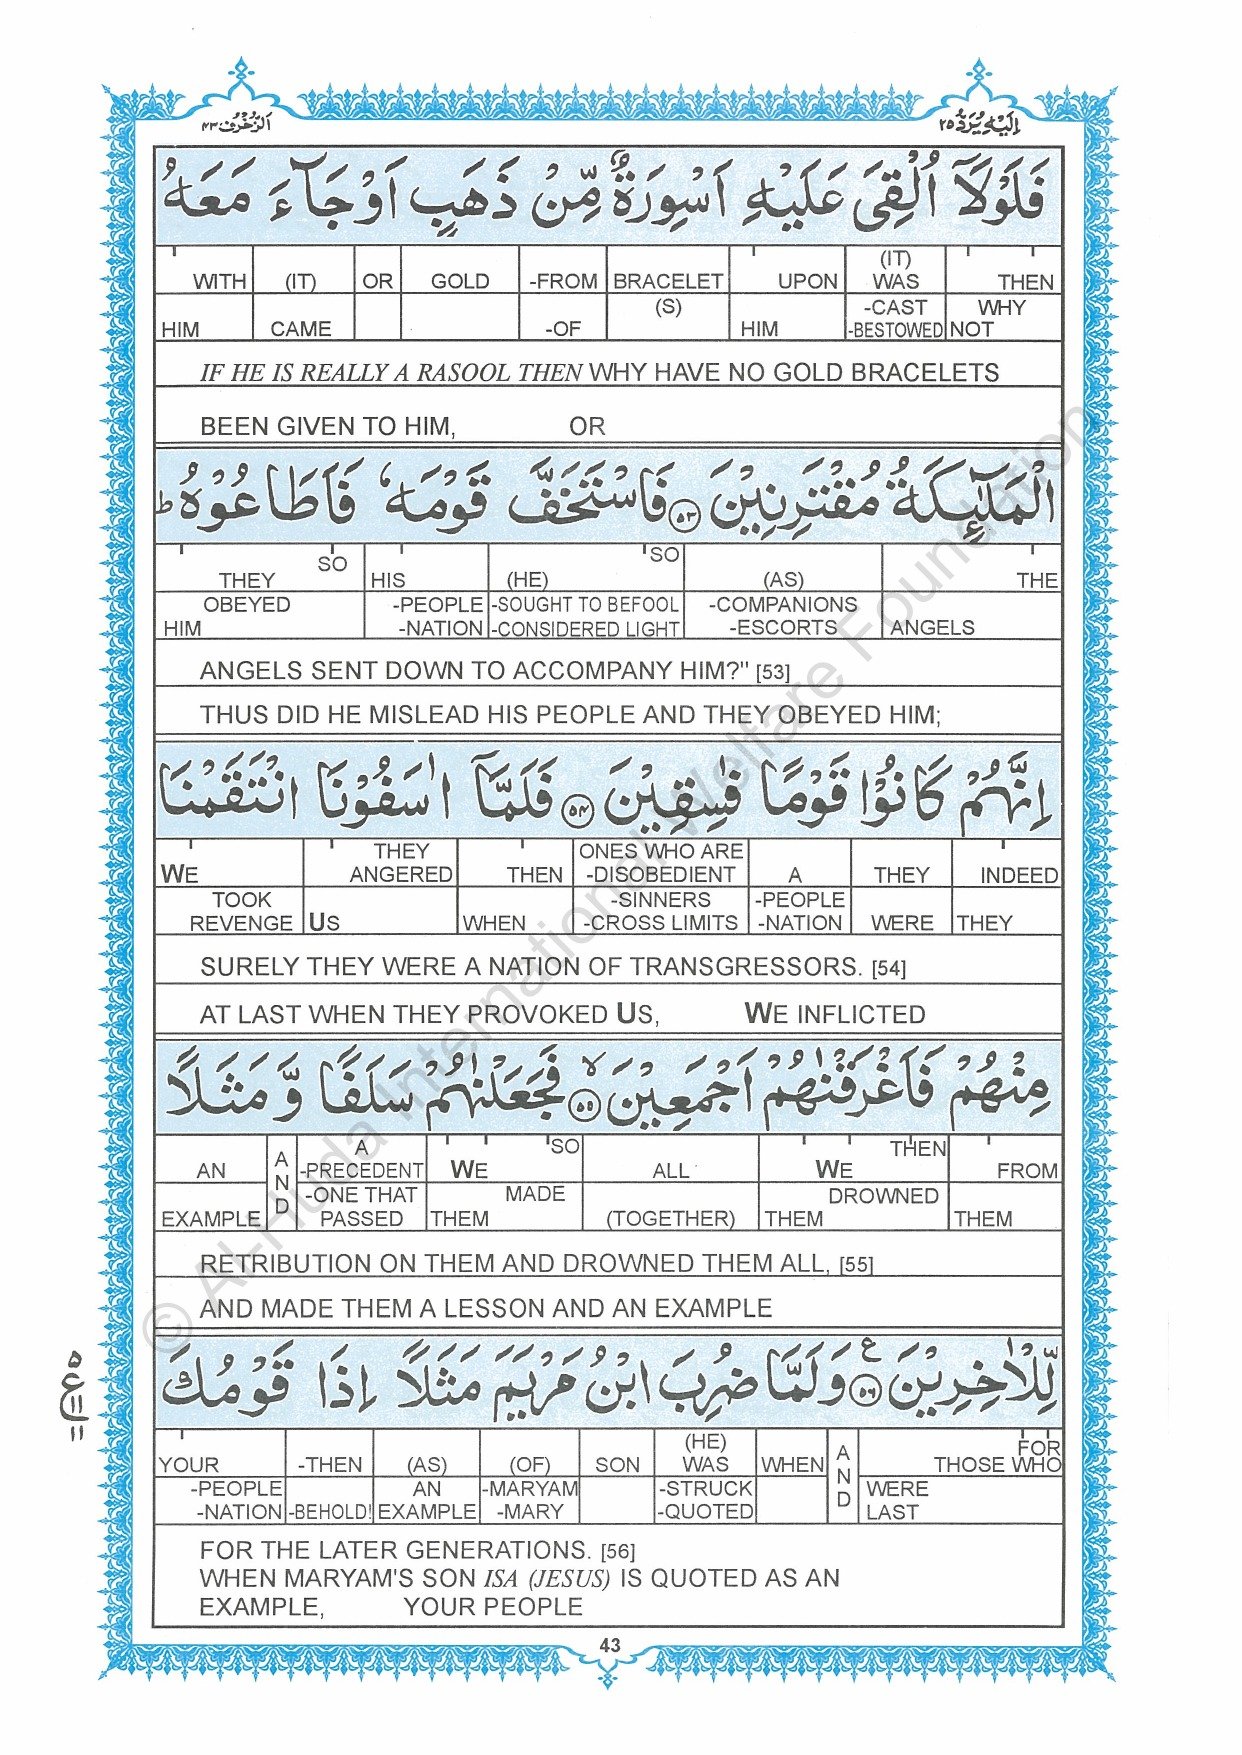 اَلزُّخْرُف ٤٣
اِلَيْهِ يُرَدُّ ٢٥
فَلَوْلَاۤ اُلْقِیَ عَلَيْهِ اَسْوِرَةٌ مِّنْ ذَهَبٍ اَوْ جَآءَ مَعَهُ
WITH (IT) OR GOLD -FROM BRACELET UPON (IT) WAS THEN
HIM CAME -OF (S) HIM -CAST -BESTOWED WHY NOT
IF HE IS REALLY A RASOOL THEN WHY HAVE NO GOLD BRACELETS
BEEN GIVEN TO HIM, OR
الْمَلٰٓئِكَةُ مُقْتَرِنِيْنَ ﴿٥٣﴾ فَاسْتَخَفَّ قَوْمَهٗ فَاَطَاعُوْهُ ؕ
THEY SO HIS (HE) SO (AS) THE
OBEYED HIM -PEOPLE -NATION -SOUGHT TO BEFOOL -CONSIDERED LIGHT -COMPANIONS -ESCORTS ANGELS
ANGELS SENT DOWN TO ACCOMPANY HIM?" [53]
THUS DID HE MISLEAD HIS PEOPLE AND THEY OBEYED HIM;
اِنَّهُمْ كَانُوْا قَوْمًا فٰسِقِيْنَ ﴿٥٤﴾ فَلَمَّاۤ اٰسَفُوْنَا انْتَقَمْنَا
WE THEY ANGERED THEN ONES WHO ARE -DISOBEDIENT A THEY INDEED
TOOK REVENGE US WHEN -SINNERS -CROSS LIMITS -PEOPLE -NATION WERE THEY
SURELY THEY WERE A NATION OF TRANSGRESSORS. [54]
AT LAST WHEN THEY PROVOKED US, WE INFLICTED
مِنْهُمْ فَاَغْرَقْنٰهُمْ اَجْمَعِيْنَ ۙ﴿٥٥﴾ فَجَعَلْنٰهُمْ سَلَفًا وَّ مَثَلًا
AN AND A -PRECEDENT SO WE ALL THEN WE FROM
EXAMPLE -ONE THAT PASSED MADE THEM (TOGETHER) DROWNED THEM THEM
RETRIBUTION ON THEM AND DROWNED THEM ALL, [55]
AND MADE THEM A LESSON AND AN EXAMPLE
لِّلْاٰخِرِيْنَ ﴿٥٦﴾ ع وَلَمَّا ضُرِبَ ابْنُ مَرْيَمَ مَثَلًا اِذَا قَوْمُكَ
YOUR -THEN (AS) (OF) SON (HE) WAS WHEN AND FOR THOSE WHO
-PEOPLE -NATION -BEHOLD! AN EXAMPLE -MARYAM -MARY -STRUCK -QUOTED WERE LAST
FOR THE LATER GENERATIONS. [56]
WHEN MARYAM'S SON ISA (JESUS) IS QUOTED AS AN
EXAMPLE, YOUR PEOPLE
٥
ع
١١
١١
43
© Al-Huda International Welfare Foundation